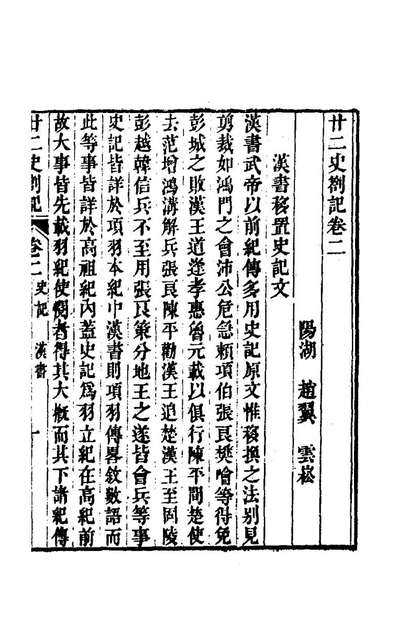 廿二史劄記卷二
陽湖 趙翼 雲崧
漢書移置史記文
漢書武帝以前紀傳多用史記原文惟移換之法別見
剪裁如鴻門之會沛公危急賴項伯張良樊噲等得免
彭城之敗漢王道逢孝惠魯元載以俱行陳平間楚使
去范增鴻溝解兵張良陳平勸漢王追楚漢王至固陵
彭越韓信兵不至用張良策分地王之遂皆會兵等事
史記皆詳於項羽本紀中漢書則項羽傳畧敘數語而
此等事皆詳於高祖紀內葢史記爲羽立紀在高紀前
故大事皆先載羽紀使閱者得其大概而其下諸紀傳
廿二史劄記 卷二 史記 漢書 一